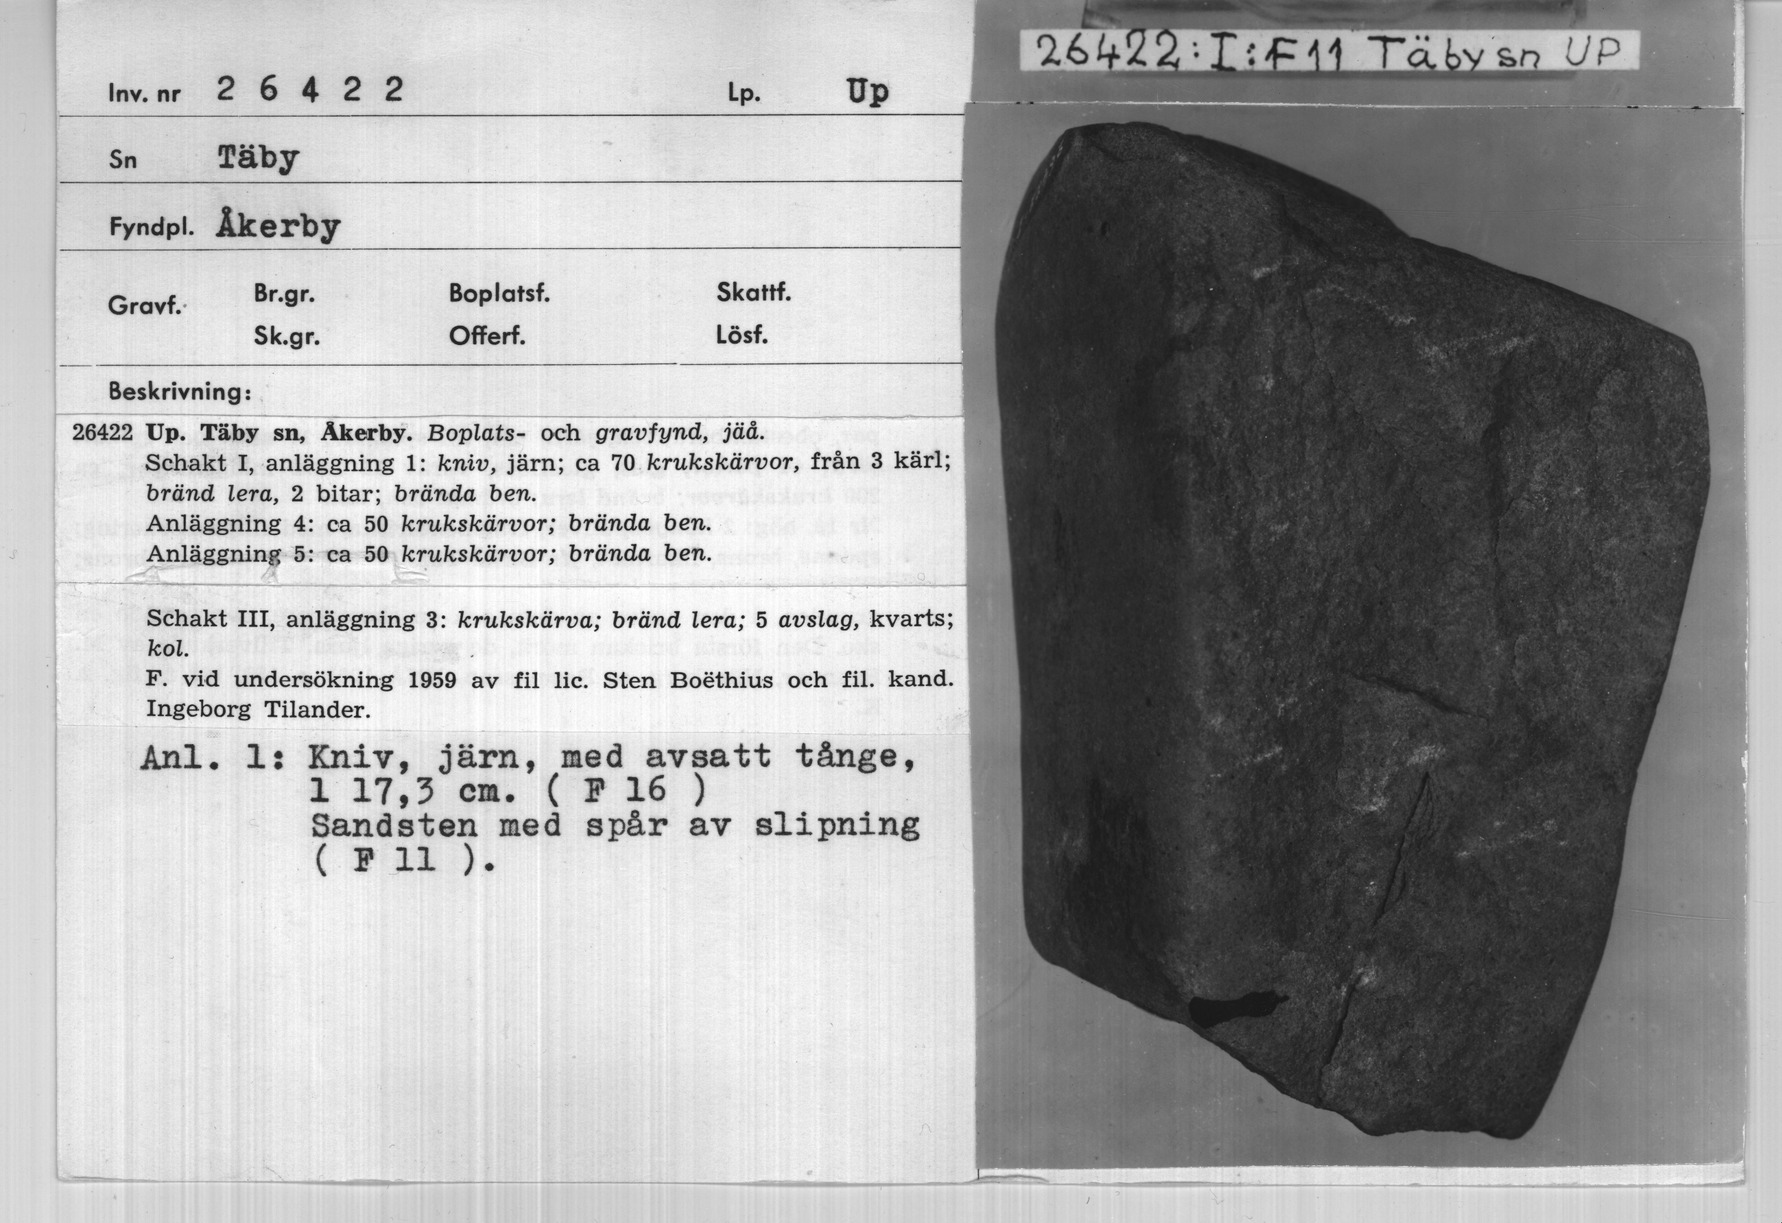 Inv. nr 26422 Lp. Up
Sn Täby
Fyndpl. Åkerby
Gravf. Br.gr. Boplatsf. Skattf.
Sk.gr. Offerf. Lösf.
Beskrivning:
26422 Up. Täby sn, Åkerby. Boplats- och gravfynd, jäå.
Schakt I, anläggning 1: kniv, järn; ca 70 krukskärvor, från 3 kärl;
bränd lera, 2 bitar; brända ben.
Anläggning 4: ca 50 krukskärvor; brända ben.
Anläggning 5: ca 50 krukskärvor; brända ben.
Schakt III, anläggning 3: krukskärva; bränd lera; 5 avslag, kvarts;
kol.
F. vid undersökning 1959 av fil lic. Sten Boëthius och fil. kand.
Ingeborg Tilander.
Anl. 1: Kniv, järn, med avsatt tånge,
l 17,3 cm. ( F 16 )
Sandsten med spår av slipning
( F 11 ).
26422:I:F11 Täby sn UP